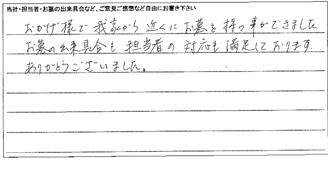 当社・担当者・お墓の出来具合など、ご意見ご感想など自由にお書き下さい
おかげ様で我家から近くにお墓を持つ事ができました
お墓の出来具合も担当者の対応も満足しております.
ありがとうございました。